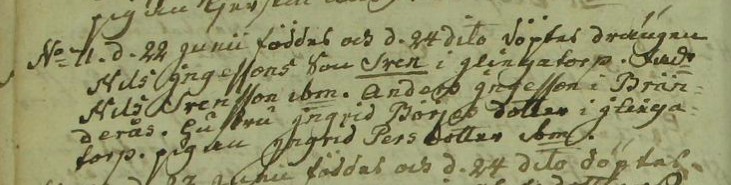 No 11. d. 22 junii föddes och d. 24 dito döptes drängen
Nils jngessons Son Sven i glingatorp. Fadr
Nils Svensson ibm. Anders jngesson i Brän-
derås. Hustru jngrid Börjes dotter i glinga-
torp. pigan jngrid Pers dotter ibm.
d. 22 junii föddes och d. 24 dito döptes